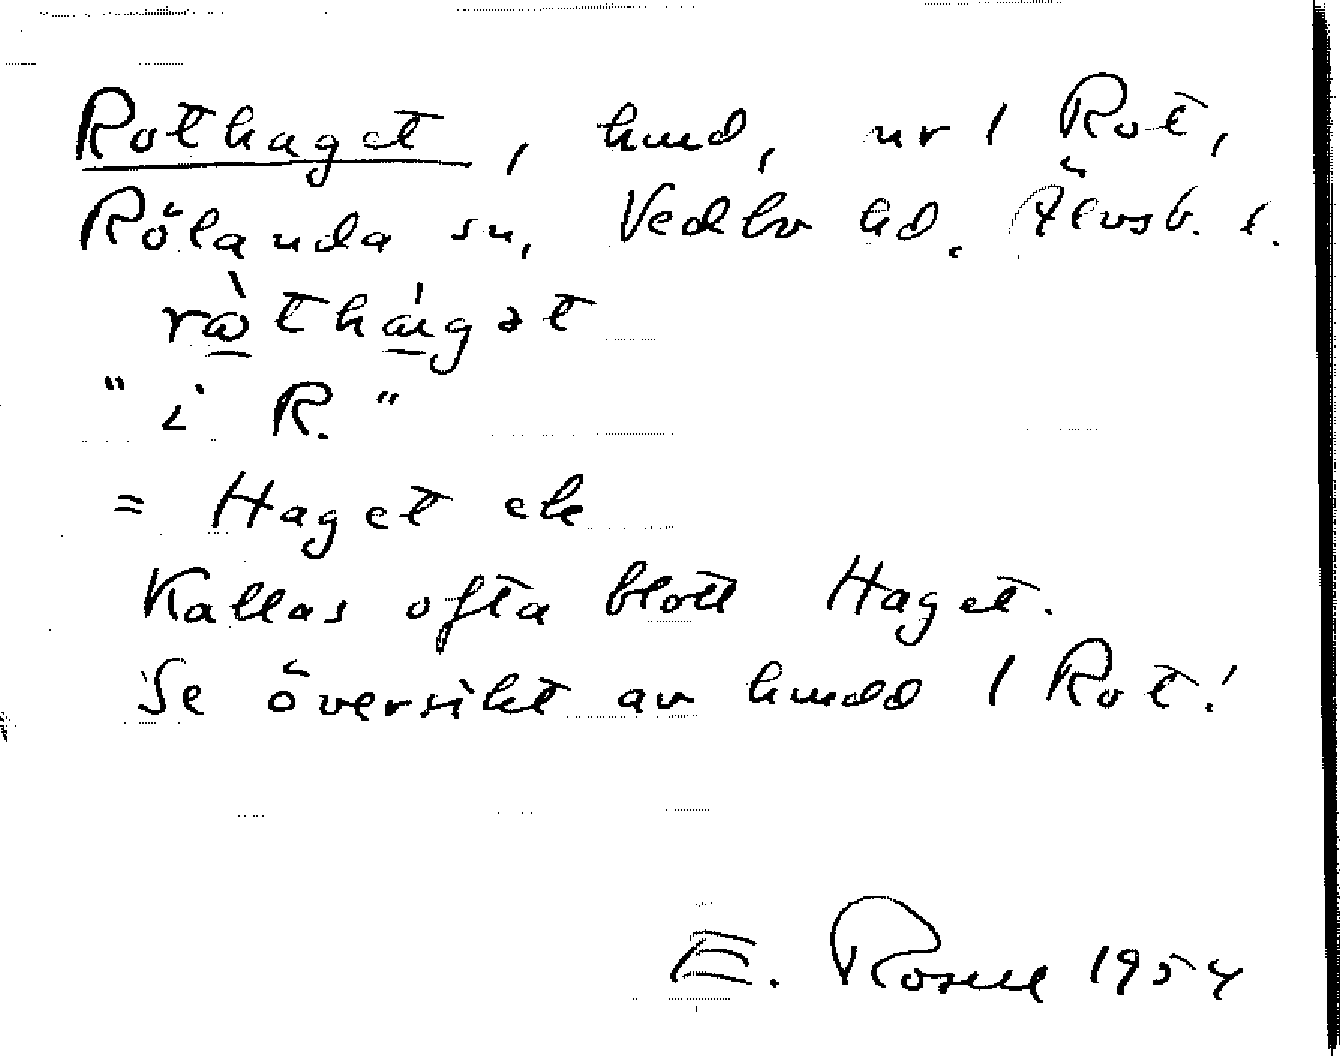 Rothaget, hmd, nr 1 Rot,
Rölanda sn, Vedbo hd. Älvsb. l.
ròthágət
" i R. "
= Haget ek
Kallas ofta blott Haget.
Se översikt av hmdd 1 Rot!
E. Rosell 1954